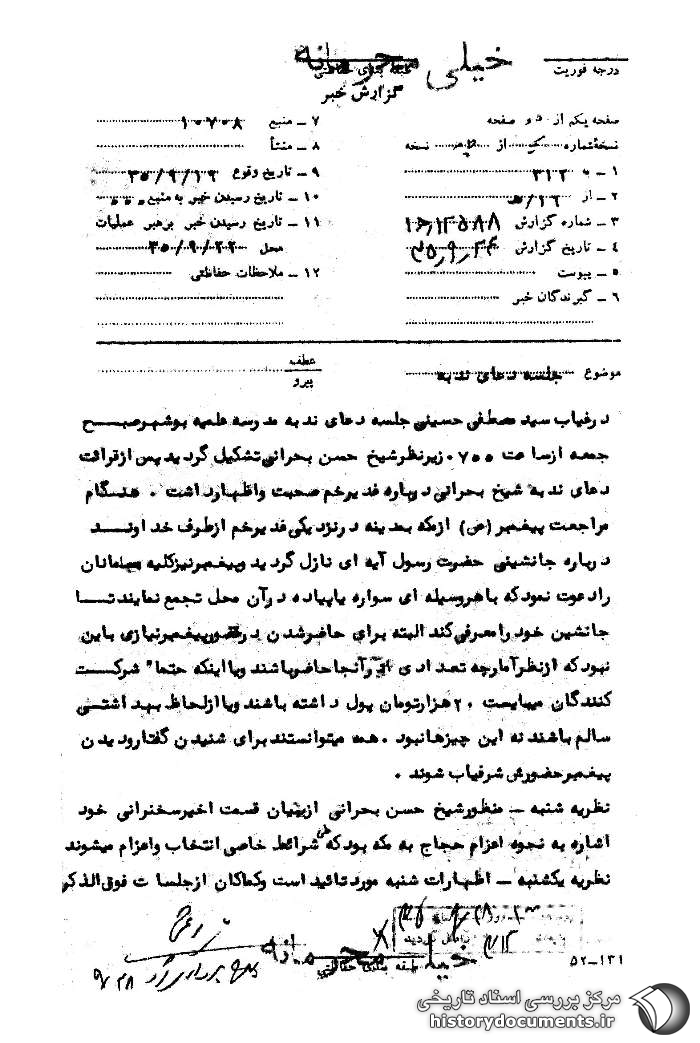 خیلی محرمانه
درجه فوریت
طبقه بندی حفاظتی
گزارش خبر
صفحه یکم از دو صفحه
نسخه شماره از نسخه
۱ ـ به ۳۱۲
۲ ـ از ۱۶/ه
۳ ـ شماره گزارش
۴ ـ تاریخ گزارش
۵ ـ پیوست
۶ ـ گیرندگان خبر
۷ ـ منبع ۱۰۷۰۸
۸ ـ منشأ
۹ ـ تاریخ وقوع
۱۰ ـ تاریخ رسیدن خبر به منبع
۱۱ ـ تاریخ رسیدن خبر برهبر عملیات
محل ۳۵/۹/۲۲
۱۲ ـ ملاحظات حفاظتی
موضوع جلسه دعای ندبه
عطف
پیرو
درغیاب سید مصطفی حسینی جلسه دعای ندبه مدرسه علمیه بوشهر صبح
جمعه ازساعت ۰۷۰۰ زیرنظر شیخ حسن بحرانی تشکیل گردید پس ازقرائت
دعای ندبه شیخ بحرانی درباره غدیرخم صحبت واظهارداشت . هنگام
مراجعت پیغمبر (ص) ازمکه بمدینه درنزدیکی غدیرخم ازطرف خداوند
درباره جانشینی حضرت رسول آیه ای نازل گردید وپیغمبرنیزکلیه مسلمانان
رادعوت نمودکه باهروسیله ای سواره یاپیاده درآن محل تجمع نمایند تا
جانشین خود رامعرفی کند البته برای حاضرشدن درحضورپیغمبرنیازی باین
نبودکه ازنظرآمارچه تعدادی آنجا حاضرباشند ویااینکه حتما" شرکت
کنندگان میبایست ۲۰ هزارتومان پول داشته باشند ویا ازلحاظ بهداشتی
سالم باشند نه این چیزهانبود . همه میتوانستند برای شنیدن گفتارودیدن
پیغمبرحضورش شرفیاب شوند .
نظریه شنبه ـ منظورشیخ حسن بحرانی ازبیان قسمت اخیرسخنرانی خود
اشاره به نحوه اعزام حجاج به مکه بودکه طی شرائط خاصی انتخاب واعزام میشوند
نظریه یکشنبه ـ اظهارات شنبه مورد تائید است وکماکان ازجلسات فوق الذکر
خیلی محرمانه
طبقه بندی حفاظتی
۵۲-۱۳۱
مرکز بررسی اسناد تاریخی
historydocuments.ir